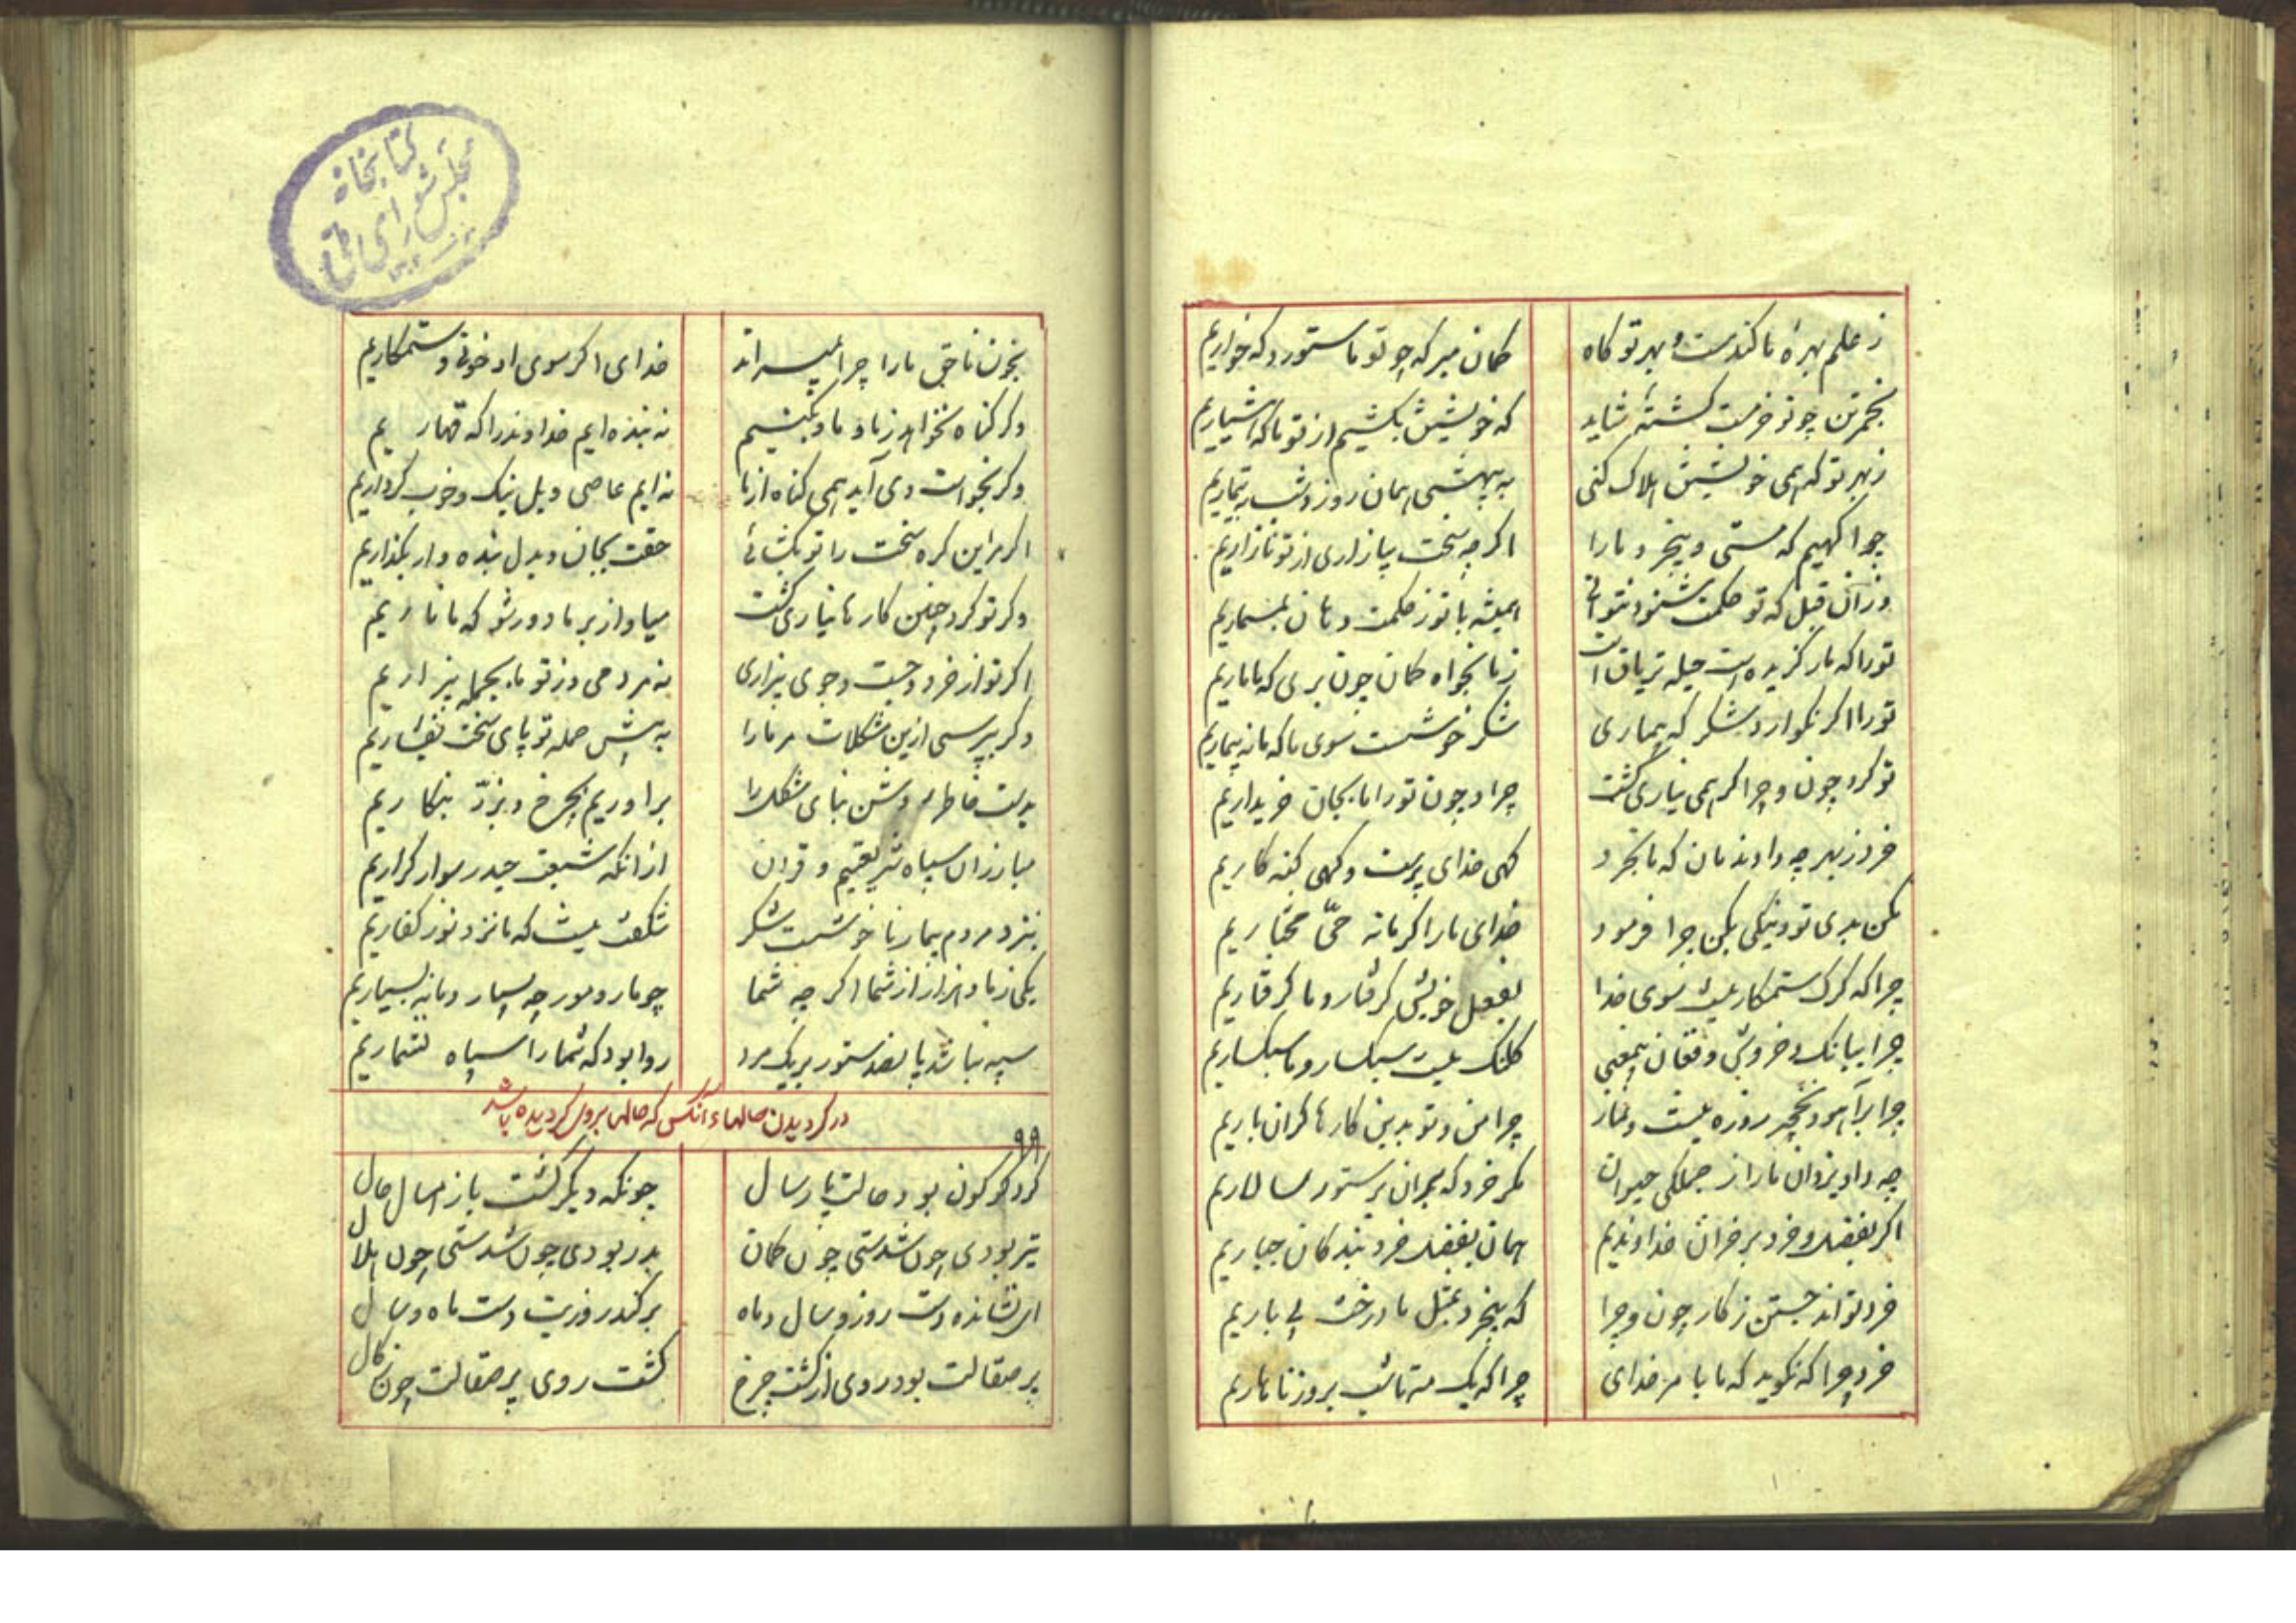 ز علم بهرهٔ ما کندمست و بهر تو کاه
کمان مبر که چو تو ما ستور و که خواریم
بخمرتن چو تو خرمست کشتهٔ شاید
که خویشتن بکشیم از تو ما که هشیاریم
ز بهر تو که همی خویشتن هلاک کنی
به بیهشی همان روز و شب بتیماریم
چرا کهیم که مستی و بیخرد ما را
اکرچه سخت بیازاری از تو نازاریم
وز آن قبل که تو حکمت شنود نتوانی
همیشه با تو ز حکمت دهان بمسماریم
تو را که مار کزیده است حیله تریاق است
ز ما بخواه کمان چون بری که ما ماریم
تو را اکر نکوارد شکر که بیماری
شکر خوشست سوی ما که ما نه بیماریم
تو کرد چون و چرا کر همی نیاری کشت
چرا و چون تو را ما بجان خریداریم
خرد ز بهر چه دادندمان که ما بخرد
کهی خدای پرست و کهی کنه کاریم
مکن بدی تو و نیکی بکن چرا فرمود
خدای ما را اکر ما نه حیّ مختاریم
چرا که کرک ستمکار نیست سوی خدا
بفعل خویش کرفتار و ما کرفتاریم
چرا ببانک و خروش و فغان بیمعنی
کلنک نیست سبکسار و ما سبکساریم
چرا بر آهو و نخچیر روزه نیست و نماز
چرا من و تو بدین کارها کران باریم
چه داد یزدان ما را ز جملکی حیوان
مکر خرد که بدان بر ستور سالاریم
اکر بفضل و خرد بر خران خداوندیم
همان بفضل خرد بندکان جباریم
خرد تواند جستن ز کار چون و چرا
که بیخرد بمثل ما درخت بی باریم
خرد چرا که نکوید که ما با مر خدای
چرا که یک مه تا شب بروز ناهاریم
بخون ناحق ما را چرا نمیراند
خدای اکر سوی او خونی و ستمکاریم
وکر کناه نخواهد ز ما و ما بکنیم
نه بنده‌ایم خداوند را که قهاریم
وکر بخواست وی آید همی کناه از ما
نه ایم عاصی و بل نیک و خوب کرداریم
اکر مر این کره سخت را تو بکشائی
حقت بجان و بدل بنده وار بکذاریم
وکر تو کرد چنین کارها نیاری کشت
میا و از بر ما دور شو که ما ناریم
اکر تو از خرد و جست و جوی بیزاری
نه مردمی و ز تو ما بجمله بیزاریم
وکر بپرسی ازین مشکلات مر ما را
به پیش حمله تو پای سخت بفشاریم
بدست خاطر روشن بنای مشکل را
براوریم بچرخ و بزرّ بنکاریم
مبارزان سپاه شریعتیم و قران
از انکه شیعت حیدر سوار کراریم
بنزد مردم بیمار ناخوشست شکر
شکفت نیست که ما نزد تو ز کفاریم
یکی ز ما و هزار از شما اکرچه شما
چو مار و مور چه بسیار و ما نه بسیاریم
سپه نباشد پانصد ستور بر یک مرد
روا بود که شما را سپاه نشماریم
در کردیدن حالهاء آنکس که حالها برو کردیده باشد
۹۹
کرد کوکون بود حالت پارسال
چونکه دیکر کشت باز امسال حال
تیر بودی چون شدستی چون کمان
بدر بودی چون شدستی چون هلال
ای نشانده دست روز و سال و ماه
برکندروزیت دست ماه و سال
پر صقالت بود روی از کشت چرخ
کشت روی پر صقالت چون نکال
کتابخانه
مجلس شورای ملی